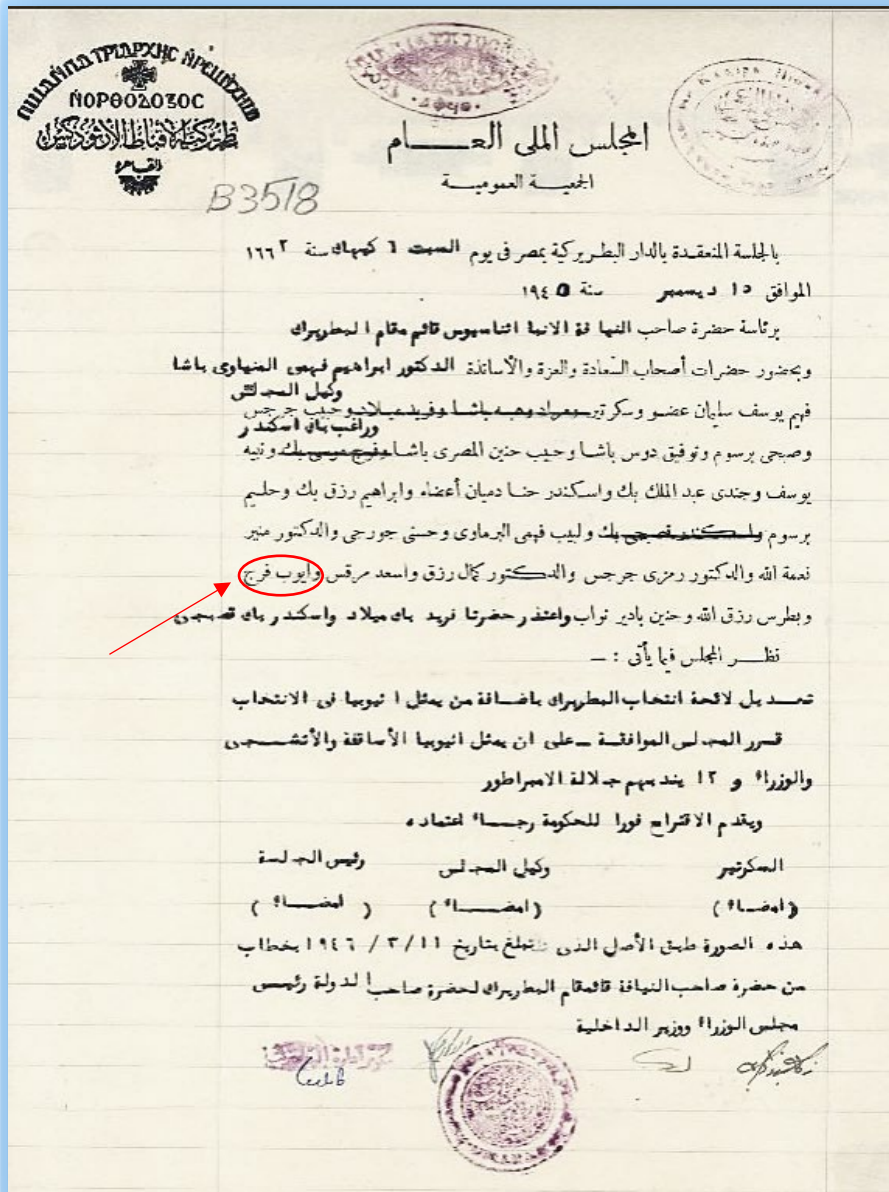 ΝΟΡΘΟΔΟΞΟС
بطريركية الأقباط الأرثوذكس
القاهرة
B3518
المجلس الملى العـــــام
الجمعيـــة العموميـــة
بالجلسة المنعقـدة بالدار البطـريركية بمصر فى يوم السبت ٦ كيهك سنة ١٦٦٢
الموافق ١٥ ديسمبر سنة ١٩٤٥
برئاسة حضرة صاحب النيافة الانبا اثناسيوس قائم مقام البطريرك
وبحضور حضرات أصحاب السعادة والعزة والأساتذة الدكتور ابراهيم فهمى المنياوى باشا
وكيل المجلس
فهيم يوسف سليمان عضو وسكرتير ومراد وهبه باشا وفريد ميلاد وحبيب جرجس
وراغب بك اسكندر
وصبحى برسوم وتوفيق دوس باشا وحبيب حنين المصرى باشا وفرج موسى بك ونبيه
يوسف وجندى عبد الملك بك واسكندر حنا دميان أعضاء وابراهيم رزق بك وحليم
برسوم واسكندر قصبجى بك ولبيب فهمى البرماوى وحسنى جورجى والدكتور منير
نعمة الله والدكتور رمزى جرجس والدكتور كمال رزق واسعد مرقس وايوب فرج
وبطرس رزق الله وحنين بادير نواب واعتذر حضرتا فريد بك ميلاد واسكندر بك قصبجى
نظـــر المجلس فيما يأتى : ــ
تعـــديل لائحة انتخاب البطريرك باضـافة من يمثل اثيوبيا فى الانتخاب
قـرر المجلس الموافقـة ــ على ان يمثل اثيوبيا الأساقفة والأتشـــجى
والوزراء و ١٢ يندبهم جـلالة الامبراطور
ويقدم الاقتراح فورا للحكومة رجـــاء اعتماده
السكرتير وكيل المجلس رئيس الجلسة
(امضاء) (امضـــاء) ( امضـــاء )
هذه الصورة طبق الأصل الذى تبلغ بتاريخ ١١ / ٣ / ١٩٤٦ بخطاب
من حضرة صاحب النيافة قائمقام البطريرك لحضرة صاحب الدولة رئيس
مجلس الوزراء ووزير الداخلية